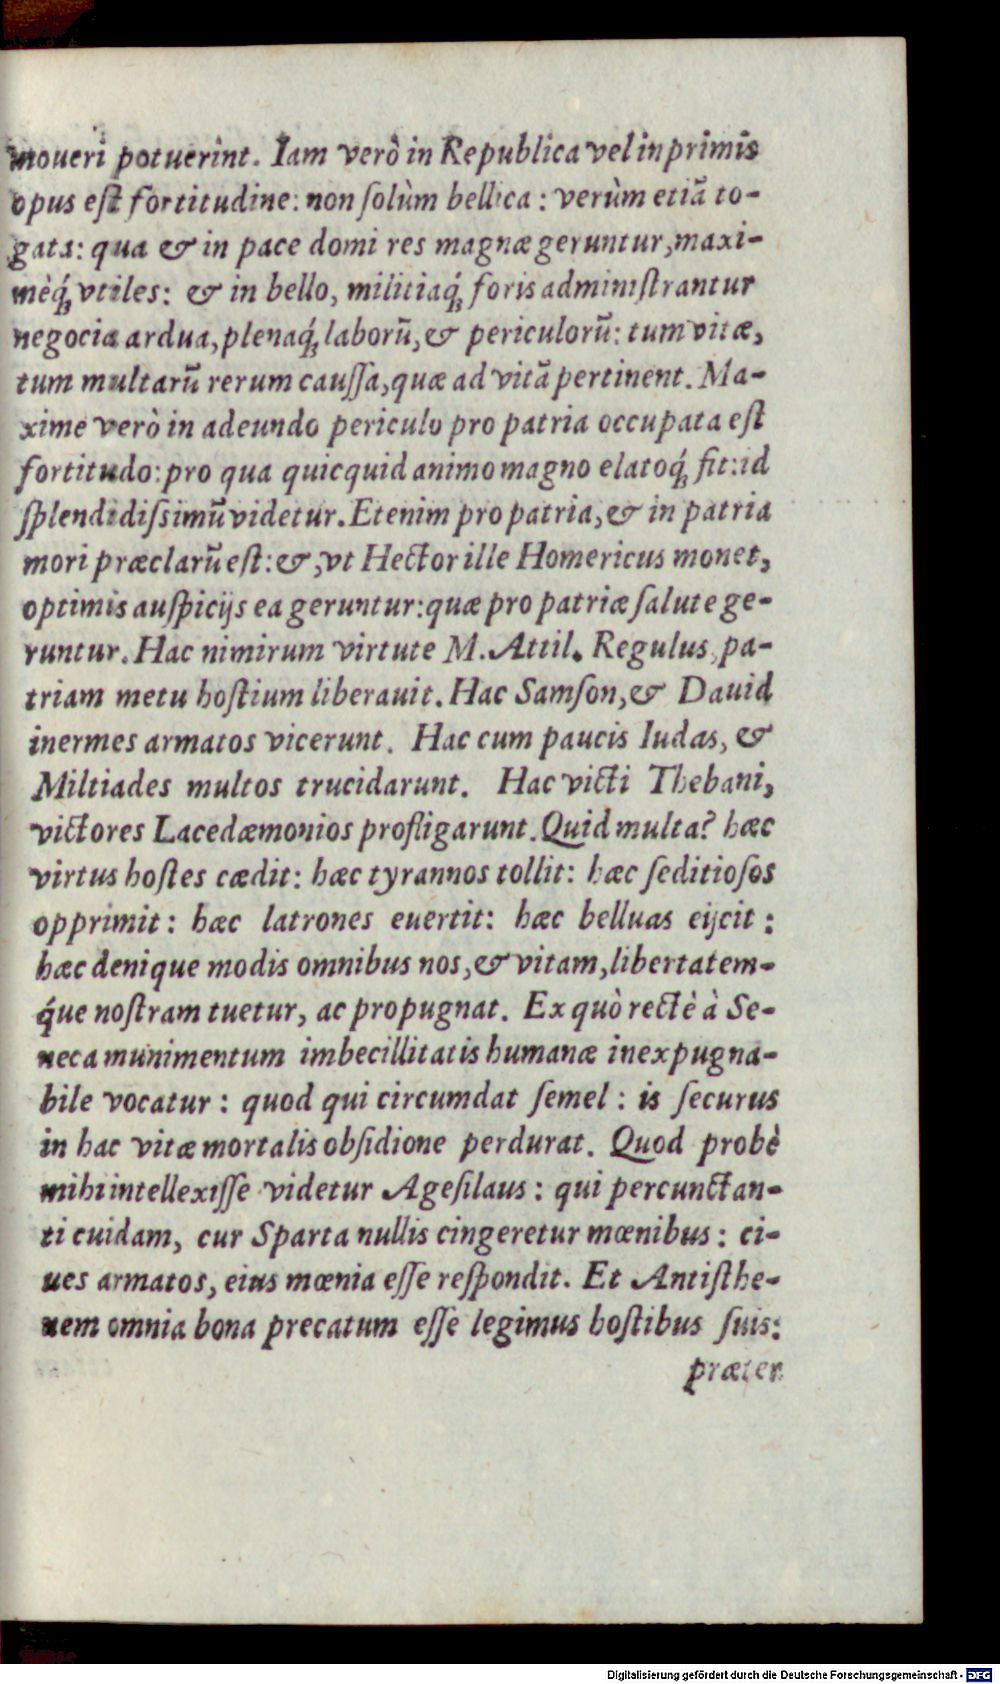 moueri potuerint. Iam verò in Republica vel in primis
opus eſt fortitudine: non ſolùm bellica: verùm etiã to-
gata: qua & in pace domi res magnæ geruntur, maxi-
mèq́; vtiles: & in bello, militiaq́; foris adminiſtrantur
negocia ardua, plenaq́; laborũ, & periculorũ: tum vitæ,
tum multarũ rerum cauſſa, quæ ad vitã pertinent. Ma-
xime verò in adeundo periculo pro patria occupata eſt
fortitudo: pro qua quicquid animo magno elatoq́; fit: id
ſplendidiſsimũ videtur. Etenim pro patria, & in patria
mori præclarũ eſt: &, vt Hector ille Homericus monet,
optimis auſpicijs ea geruntur: quæ pro patriæ ſalute ge-
runtur. Hac nimirum virtute M. Attil. Regulus, pa-
triam metu hoſtium liberauit. Hac Samſon, & Dauid
inermes armatos vicerunt. Hac cum paucis Iudas, &
Miltiades multos trucidarunt. Hac victi Thebani,
victores Lacedæmonios profligarunt. Quid multa? hæc
virtus hoſtes cædit: hæc tyrannos tollit: hæc ſeditioſos
opprimit: hæc latrones euertit: hæc belluas eijcit:
hæc denique modis omnibus nos, & vitam, libertatem-
q́ue noſtram tuetur, ac propugnat. Ex quò rectè à Se-
neca munimentum imbecillitatis humanæ inexpugna-
bile vocatur: quod qui circumdat ſemel: is ſecurus
in hac vitæ mortalis obſidione perdurat. Quod probè
mihi intellexiſſe videtur Ageſilaus: qui percunctan-
ti cuidam, cur Sparta nullis cingeretur mœnibus: ci-
ues armatos, eius mœnia eſſe reſpondit. Et Antiſthe-
nem omnia bona precatum eſſe legimus hoſtibus ſuis:
præter
Digitalisierung gefördert durch die Deutsche Forschungsgemeinschaft - DFG